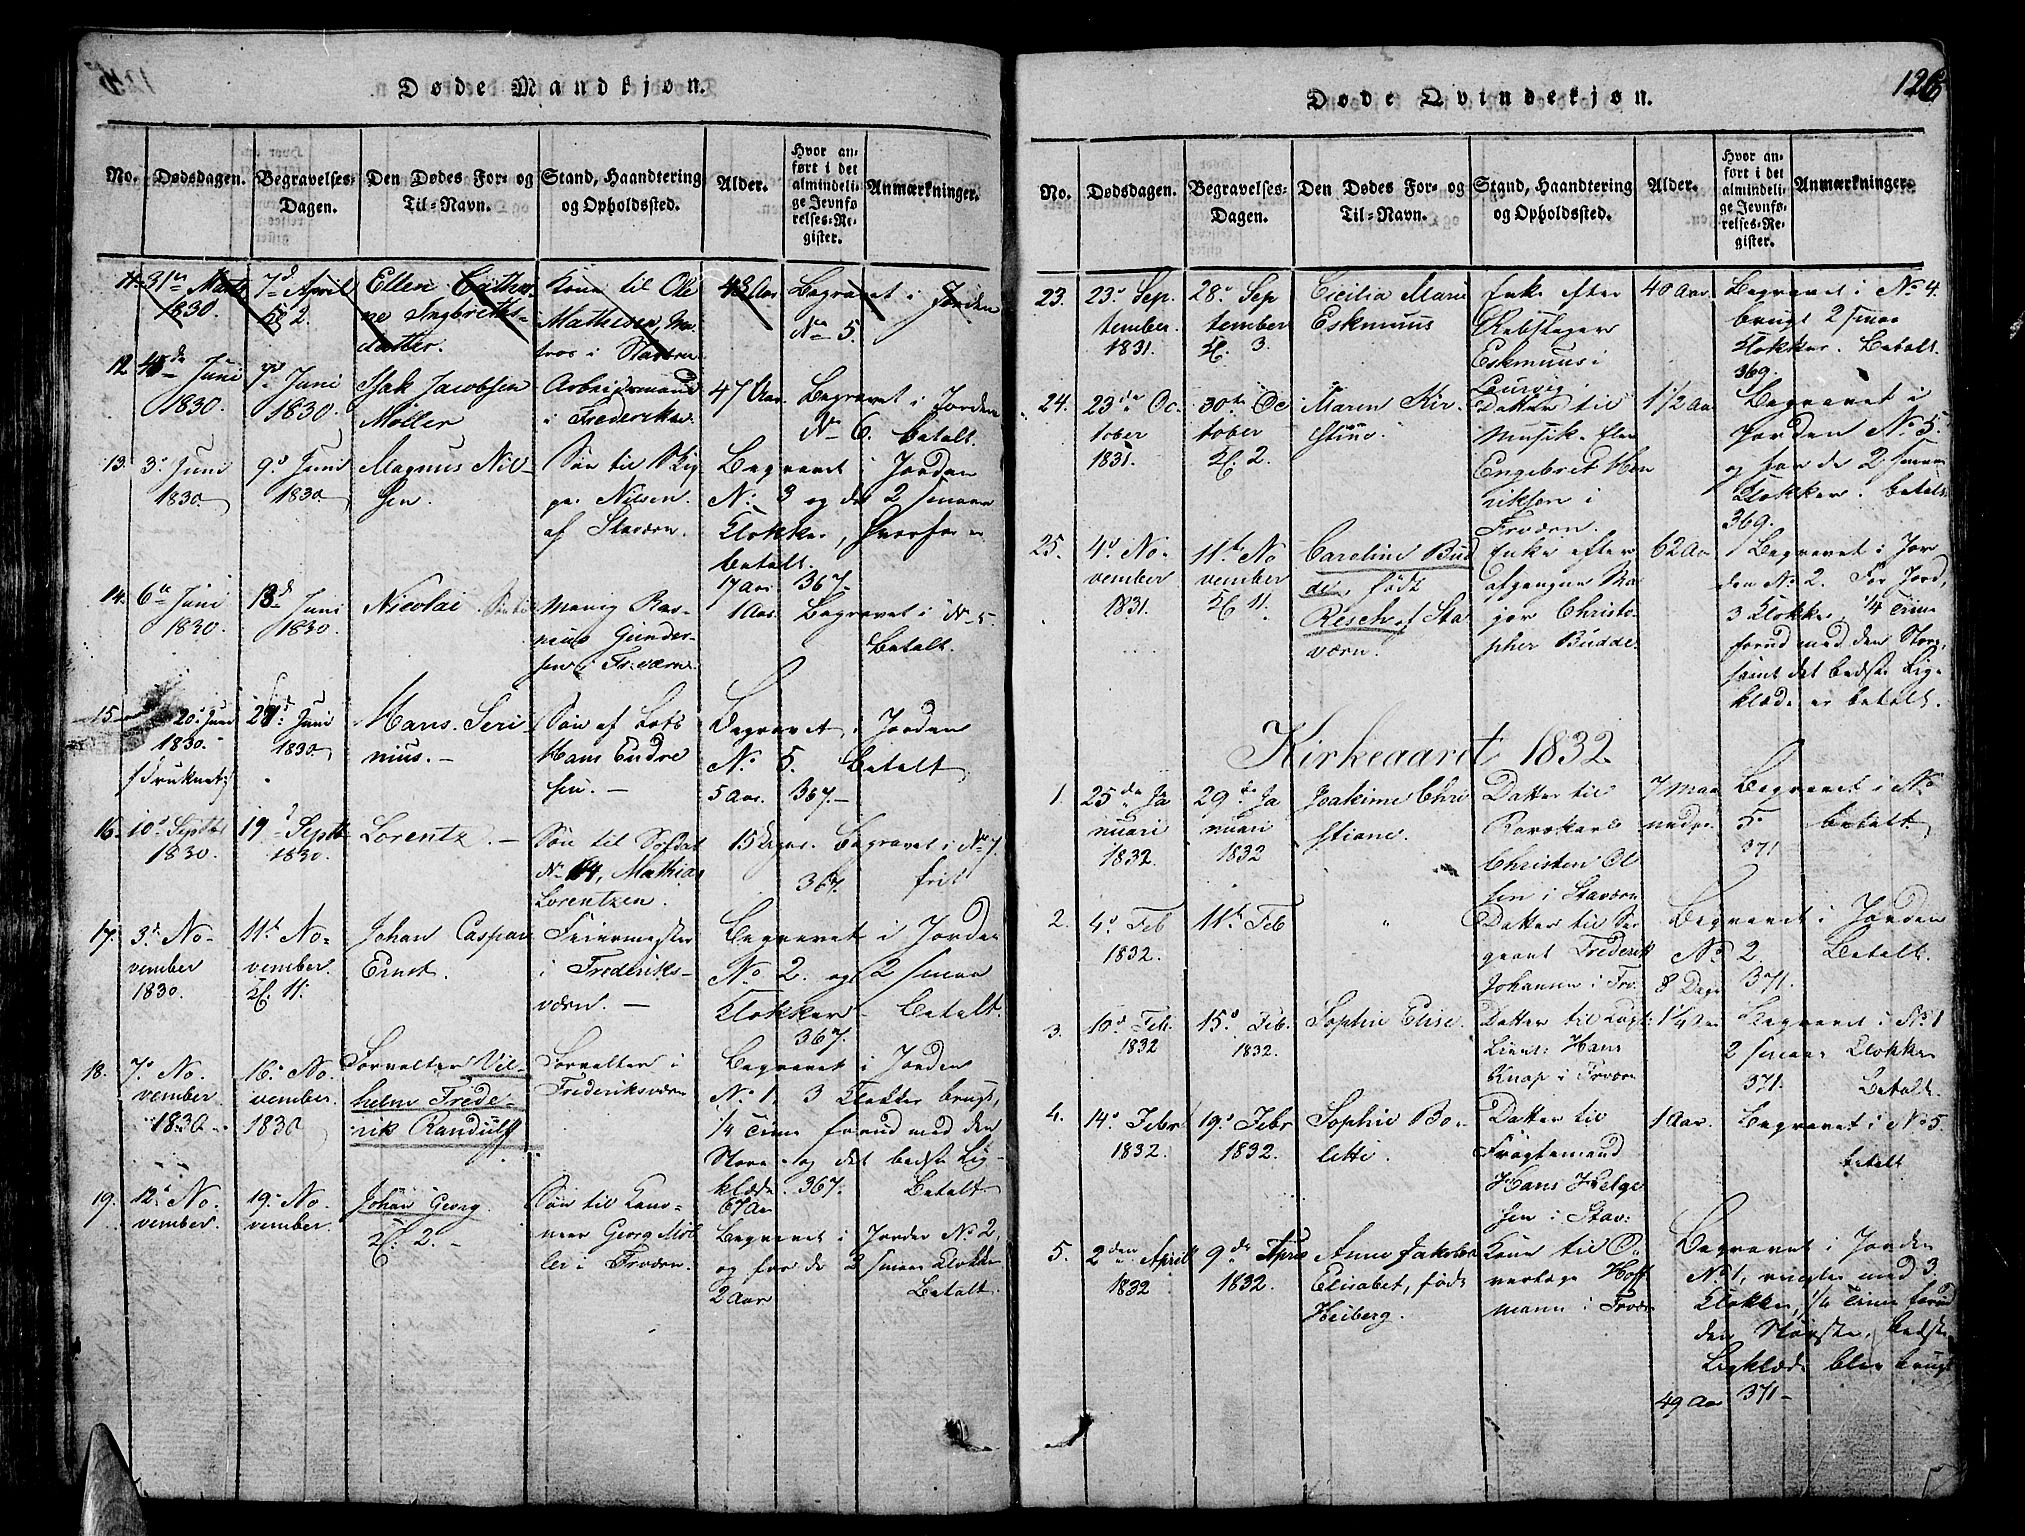 Døde Mandkjøn.
No.
Dødsdagen.
Begravelses-
Dagen.
Den Dødes For- og
Til-Navn.
Stand, Haandtering
og Opholdssted.
Alder.
Hvor an-
ført i det
almindeli-
ge Jevnfø-
relses-Re-
gister.
Anmærkninger.
11. 31te Marts
1830.
7d April
Kl 2.
Ellen Cathri-
ne Ingbrigts-
datter.
Kone til Ole
Mathiesen, Ma-
tros i Stavern
48 Aar
Begravet i Jorden
No 5.
12. 4de Juni
1830.
7d Juni
1830.
Isak Jacobsen
Møller
Arbeidsmand
i Frederiksv.
47 Aar.
Begravet i Jorden
No 6. betalt.
13. 3d Juni
1830.
9d Juni
1830.
Magnus Nil-
sen.
Søn til
Nilsen
af Stavern.
Begravet i Jorden
No 3 og de 2 smaa
Klokker, hvorfor er
betalt.
17 Aar 367.
14. 6te Juni
1830.
13d Juni
1830.
Nicolai
Ras-
mus Gunder-
sen i Fr.værn.
1 Aar. Begravet i No 5
Betalt.
15. 20d Juni
1830.
(druknet)
27d Juni
1830
Hans Seri-
nius.
Søn af Lods
Hans Endre
sen.
Begravet i Jorden
No 5. Betalt
5 Aar. 367.
16. 10d Septb
1830.
19d Septb
1830.
Lorentz.
Søn til Soldat
No 14, Mathias
Lorentzen.
15 Dage. Begravet i No 7.
367. frit
17. 3d No-
vember
1830.
11te No-
vember.
Kl. 11.
Johan Caspar
Ernst.
Feiermester
i Frederiks-
værn.
Begravet i Jorden
No 2. og 2 smaa
Klokker. Betalt.
367.
18. 7d No.
vember
1830.
16d No.
vember.
1830
Forvalter Vil-
helm Frede-
rik Randulff
Forvalter i
Frederiksværn
Begravet i Jorden
No 1. 3 Klokker brugt,
1/4 Time forud med den
Store og det bedste Lig-
klæde. 367. Betalt.
67 Aar
19. 12te No-
vember
19d No.
vember.
Johan Georg.
Kl. 2.
Søn til Kano-
neer Georg Møl
ler i Frværn.
Begravet i Jorden No 2,
og for de 3 smaa Klokker
Betalt.
2 Aar
Døde Qvindekjøn.
126
No.
Dødsdagen.
Begravelses-
Dagen.
Den Dødes For- og
Til-Navn.
Stand, Haandtering
og Opholdssted.
Alder.
Hvor an-
ført i det
almindeli-
ge Jevnfø-
relses-Re-
gister.
Anmærkninger.
23. 23d Sep
tember.
1831.
28d Sep
tember
Kl. 3.
Cicilia Marie
Eskmuus
Enke efter
Rebslager
Eskmuus i
Laurvig.
40 Aar.
Begravet i No 4.
brugt 2 smaa
Klokker. Betalt.
369.
24. 23de Oc.
tober
1831.
30te Oc
tober
Kl. 2.
Maren Kir.
stine.
Datter til
Musik.
Engebret Hen
riksen i
Frværn.
1 1/2 Aar
Begravet i
Jorden No 5.
og for de 2 smaa
Klokker. betalt
369.
25. 4d No-
vember
1831.
11te No
vember
Kl 11.
Caroline Bud
de, født
Resch af Sta
værn.
Enke efter
afgangne Ma-
jor Christo-
pher Budde.
62 Aar
Begravet i Jor
den No 2. For Jord,
3 Klokker, 1/4 Time
forud med den Store
samt det bedste Lig-
klæde er betalt.
Kirkeaaret 1832.
1. 25de Ja
nuari
1832.
29de Ja
nuari
1832
Joakime Chri
stiane.
Datter til
Christen Ol
sen i Staværn
7 Maa
neder.
Begravet i No
5. betalt
371
2. 4d Feb
1832.
11te Feb
"
Datter til Ser
geant Frederik
Johannes i Frv.
8 Dage
Begravet i Jorden
No 2. Betalt.
371.
3. 10d Feb.
1832
15d Feb.
1832.
Sophie Elise.
Datter til
Lieut: Hans
Knap i Frværn
1/4 Aar
Begravet i No 1
2 smaa Klokker
371. Betalt.
4. 14d Febr
1832.
19d Febr
1832.
Sophie Bo-
lette.
Datter til
Frøgtemand
Hans Helge
sen i Stav:
1 Aar.
Begravet i No 5.
betalt
5. 2den April
1832
9de April
1832.
Anne Jakobea
Elisabet, født
Heiberg.
Kone til O-
verlæge Hoff
mann i Frværn
Begravet i Jorden
No 1, ringtes med 3
Klokker, 1/4 Time forud
den Største, bedste
Ligklæde blev brugt
49 Aar 371